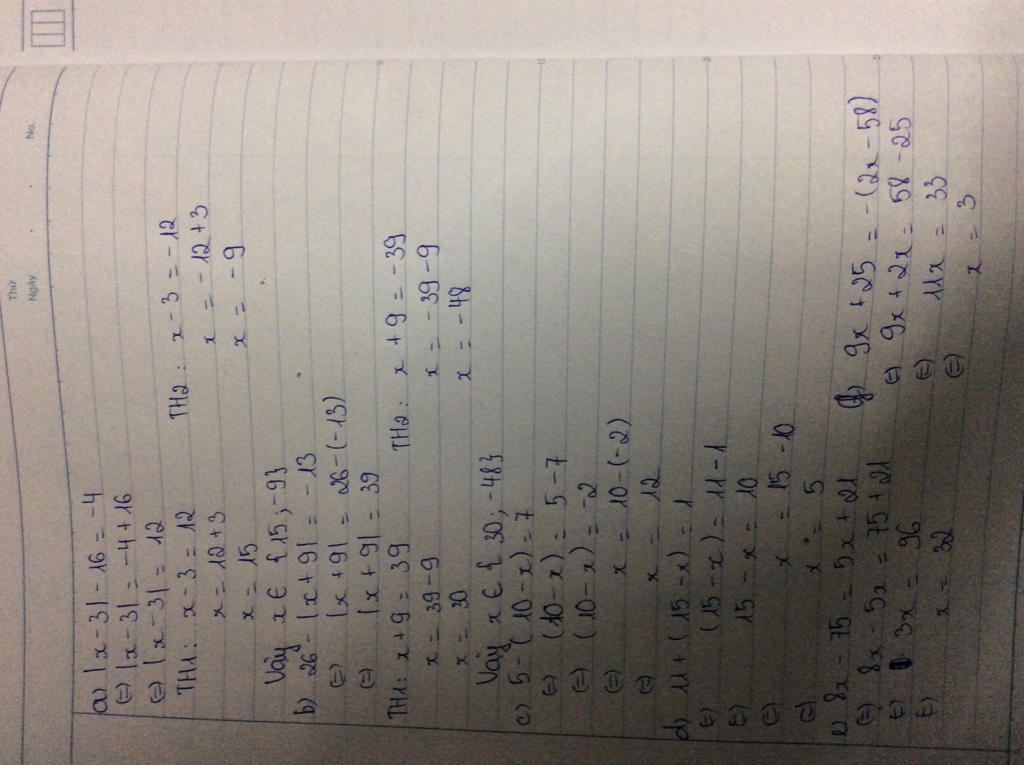 Thứ
Ngày
No.
a) |x - 3| - 16 = -4
(=) |x - 3| = -4 + 16
(=) |x - 3| = 12
TH1: x - 3 = 12
x = 12 + 3
x = 15
TH2: x - 3 = -12
x = -12 + 3
x = -9
Vậy x ∈ {15; -9}
b) 26 - |x + 9| = -13
(=) |x + 9| = 26 - (-13)
(=) |x + 9| = 39
TH1: x + 9 = 39
x = 39 - 9
x = 30
TH2: x + 9 = -39
x = -39 - 9
x = -48
Vậy x ∈ {30; -48}
c) 5 - (10 - x) = 7
(=) (10 - x) = 5 - 7
(=) (10 - x) = -2
(=) x = 10 - (-2)
(=) x = 12
d) 11 + (15 - x) = 1
(=) (15 - x) = 11 - 1
(=) 15 - x = 10
(=) x = 15 - 10
(=) x = 5
e) 8x - 75 = 5x + 21
(=) 8x - 5x = 75 + 21
(=) 3x = 96
(=) x = 32
g) 9x + 25 = -(2x - 58)
(=) 9x + 2x = 58 - 25
(=) 11x = 33
(=) x = 3